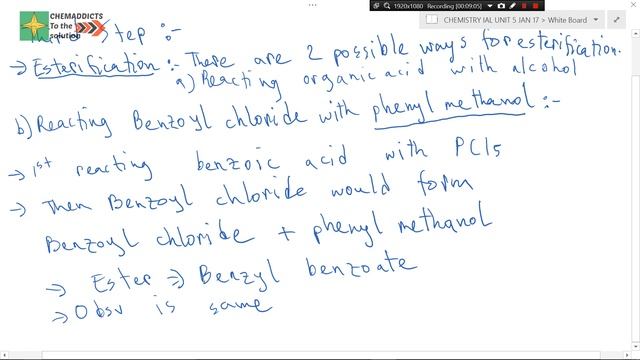 CHEMADDICTS
To the
solution
1920x1080
Recording [00:09:05]
CHEMISTRY IAL UNIT 5 JAN 17 > White Board
Third Step :-
→ Esterification :- There are 2 possible ways for esterification.
a) Reacting organic acid with alcohol
b) Reacting Benzoyl chloride with phenyl methanol :-
→ 1st reacting benzoic acid with PCl5
→ Then Benzoyl chloride would form
Benzoyl chloride + phenyl methanol
→ Ester ⇒ Benzyl benzoate
→ Obsv is same